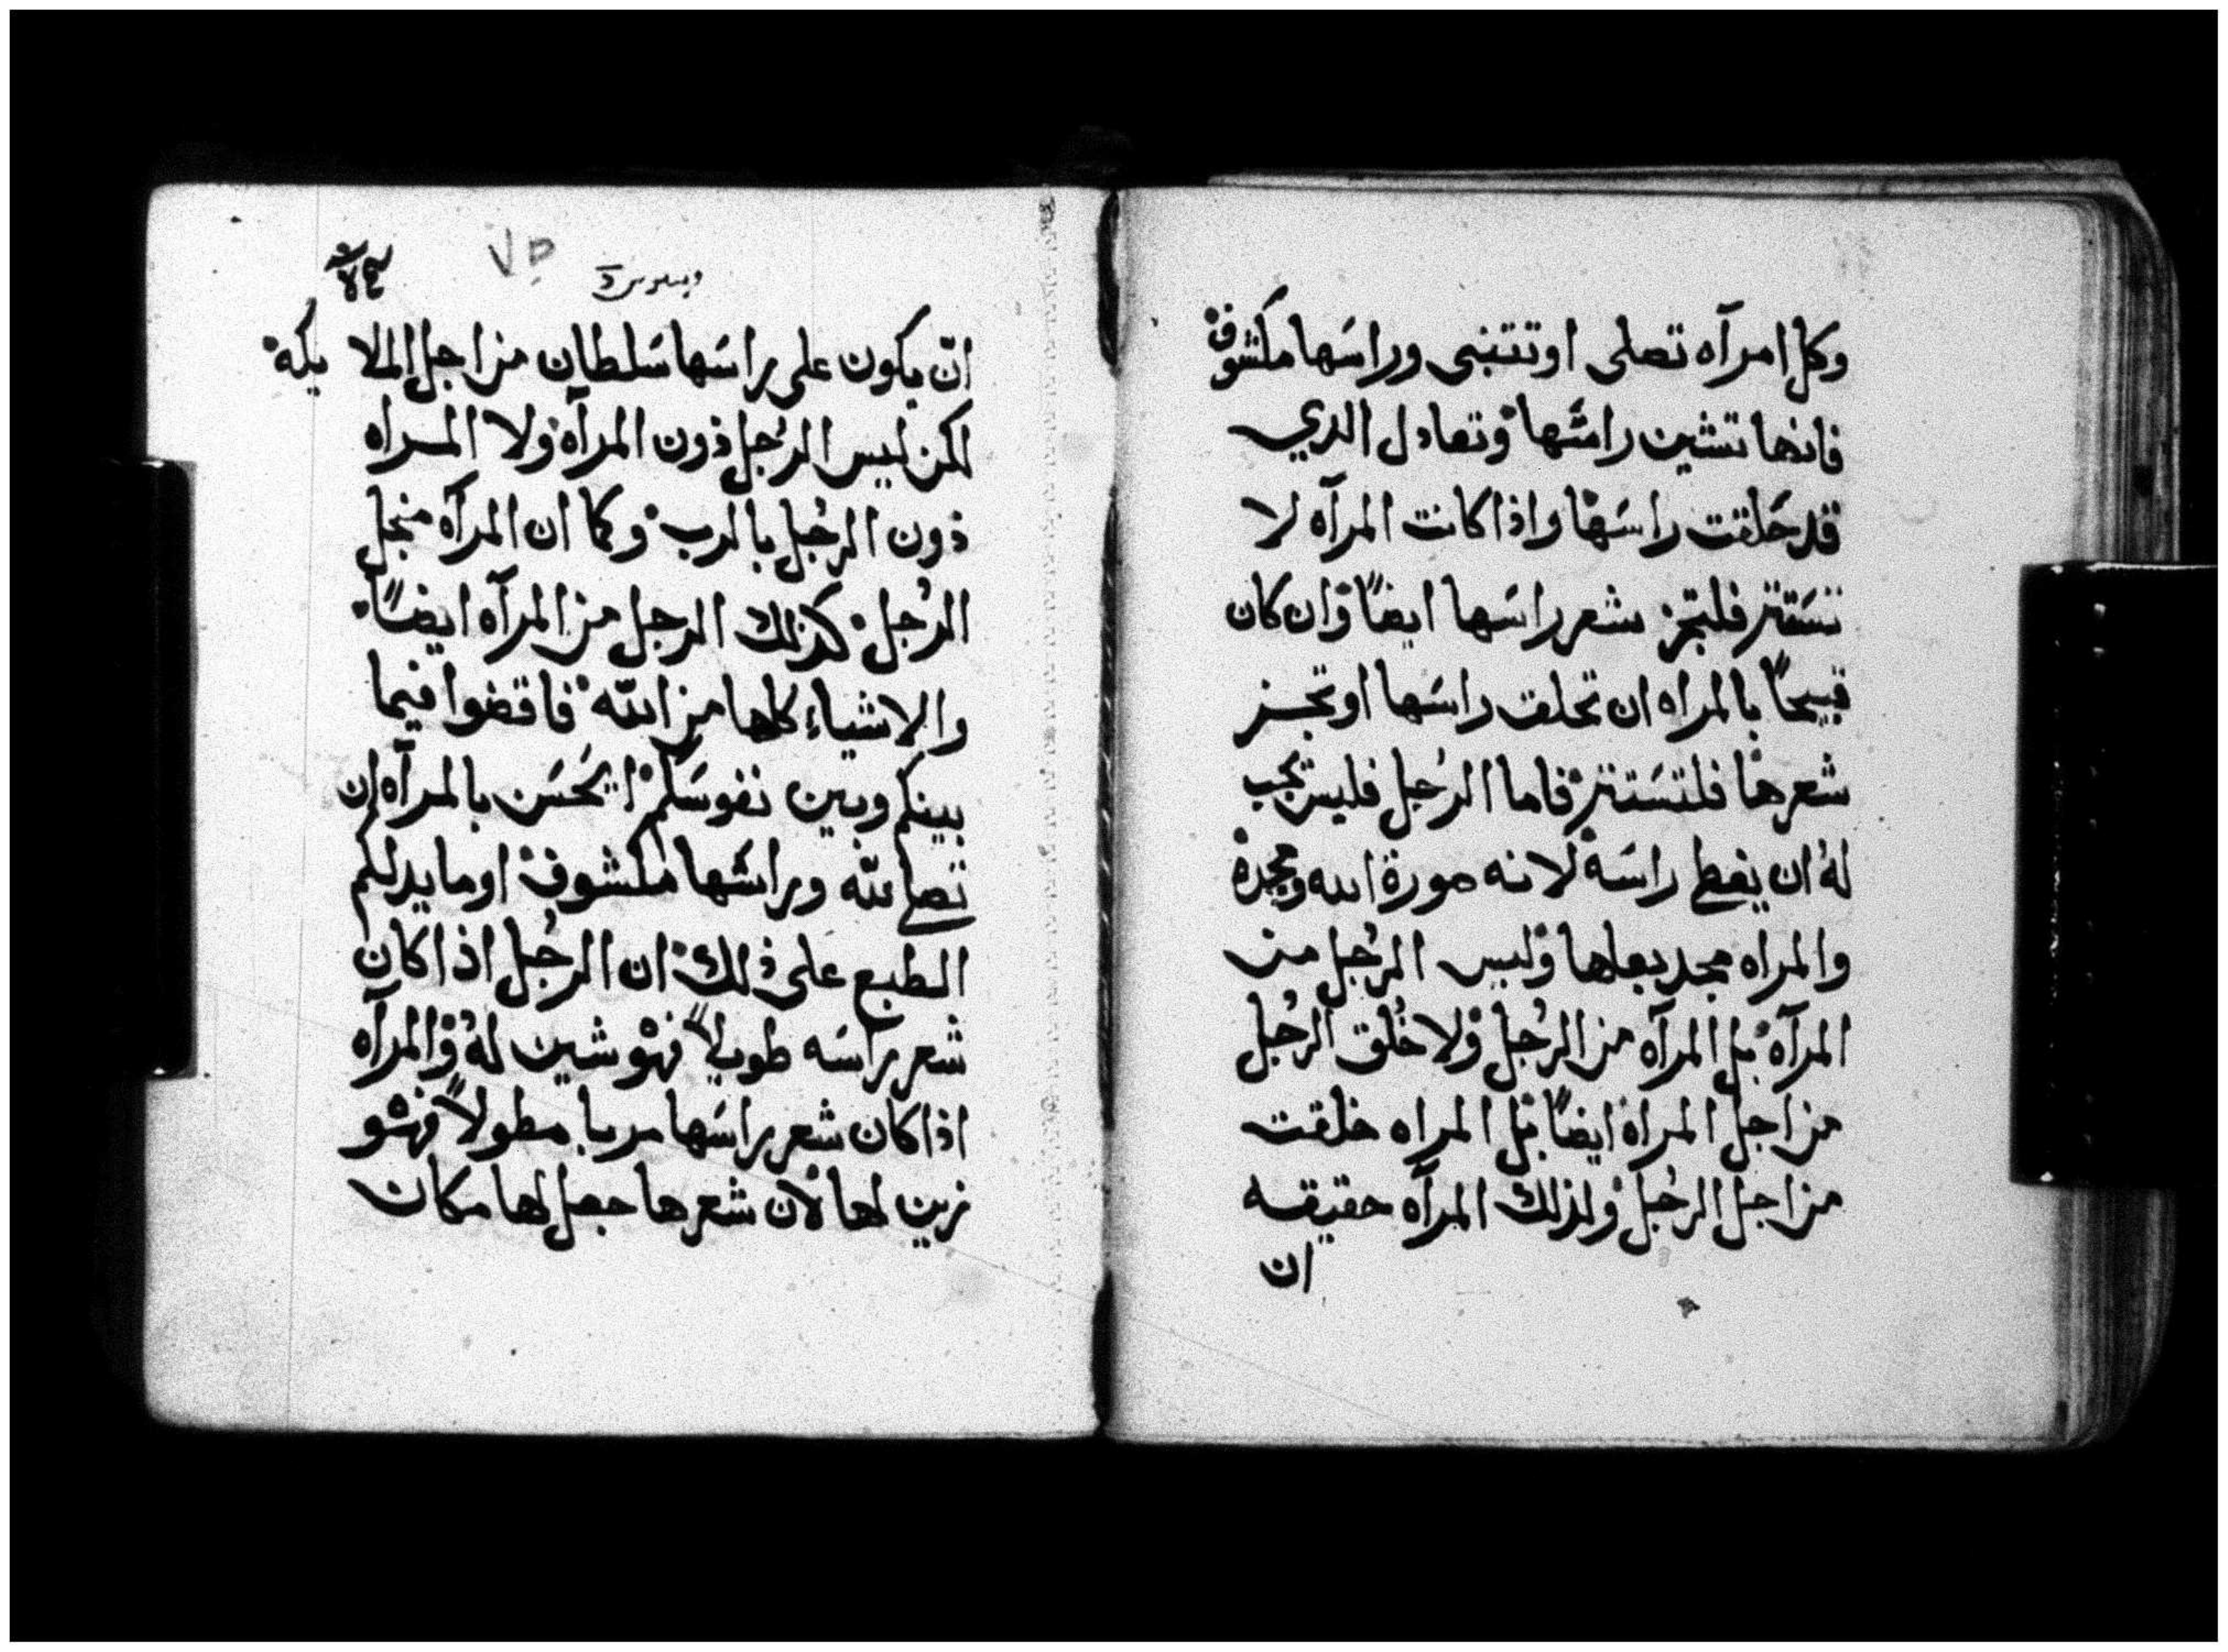 وكل امرآه تصلى او تتنبى وراسَها مكشوف
فانها تشين راسَها وتعادل الدي
قد حَلقت راسَها واذا كانت المرآه لا
تسَتتر فلتجز شعر راسَها ايضاً وان كان
قبيحاً بالمراه ان تحلق راسَها او تجز
شعرها فلتسَتتر فاما الرُجل فليس يجب
لهُ ان يغطى راسَه لانه صورة الله ومجدة
والمراه مجد بعلها وليس الرُجل من
المرآه بل المرآه من الرُجل ولا خُلق الرجُل
من اجل المراة ايضاً بل المراه خلقت
من اجل الرجُل ولذلك المرآه حقيقه
ان
٧٥
انّ يكون على راسَها سَلطان من اجل الملايكه
لكن ليس الرُجل ذون المرآه ولا المراه
ذون الرجُل بالرب وكما ان المرآه منجل
الرُجل كذلك الرجل من المرآه ايضاً
والاشياء كلها من الله فاقضوا فيما
بينكم وبين نفوسَكم ايحَسَن بالمرآه ان
تصلى لله وراسَها مكشوف او ما يدلكم
الطبع على ذلك ان الرجُل اذا كان
شعر راسَه طويلاً فهو شين لهُ والمرآه
اذا كان شعر راسَها مربا مطولاً فهو
زين لها لان شعرها جعل لها مكان